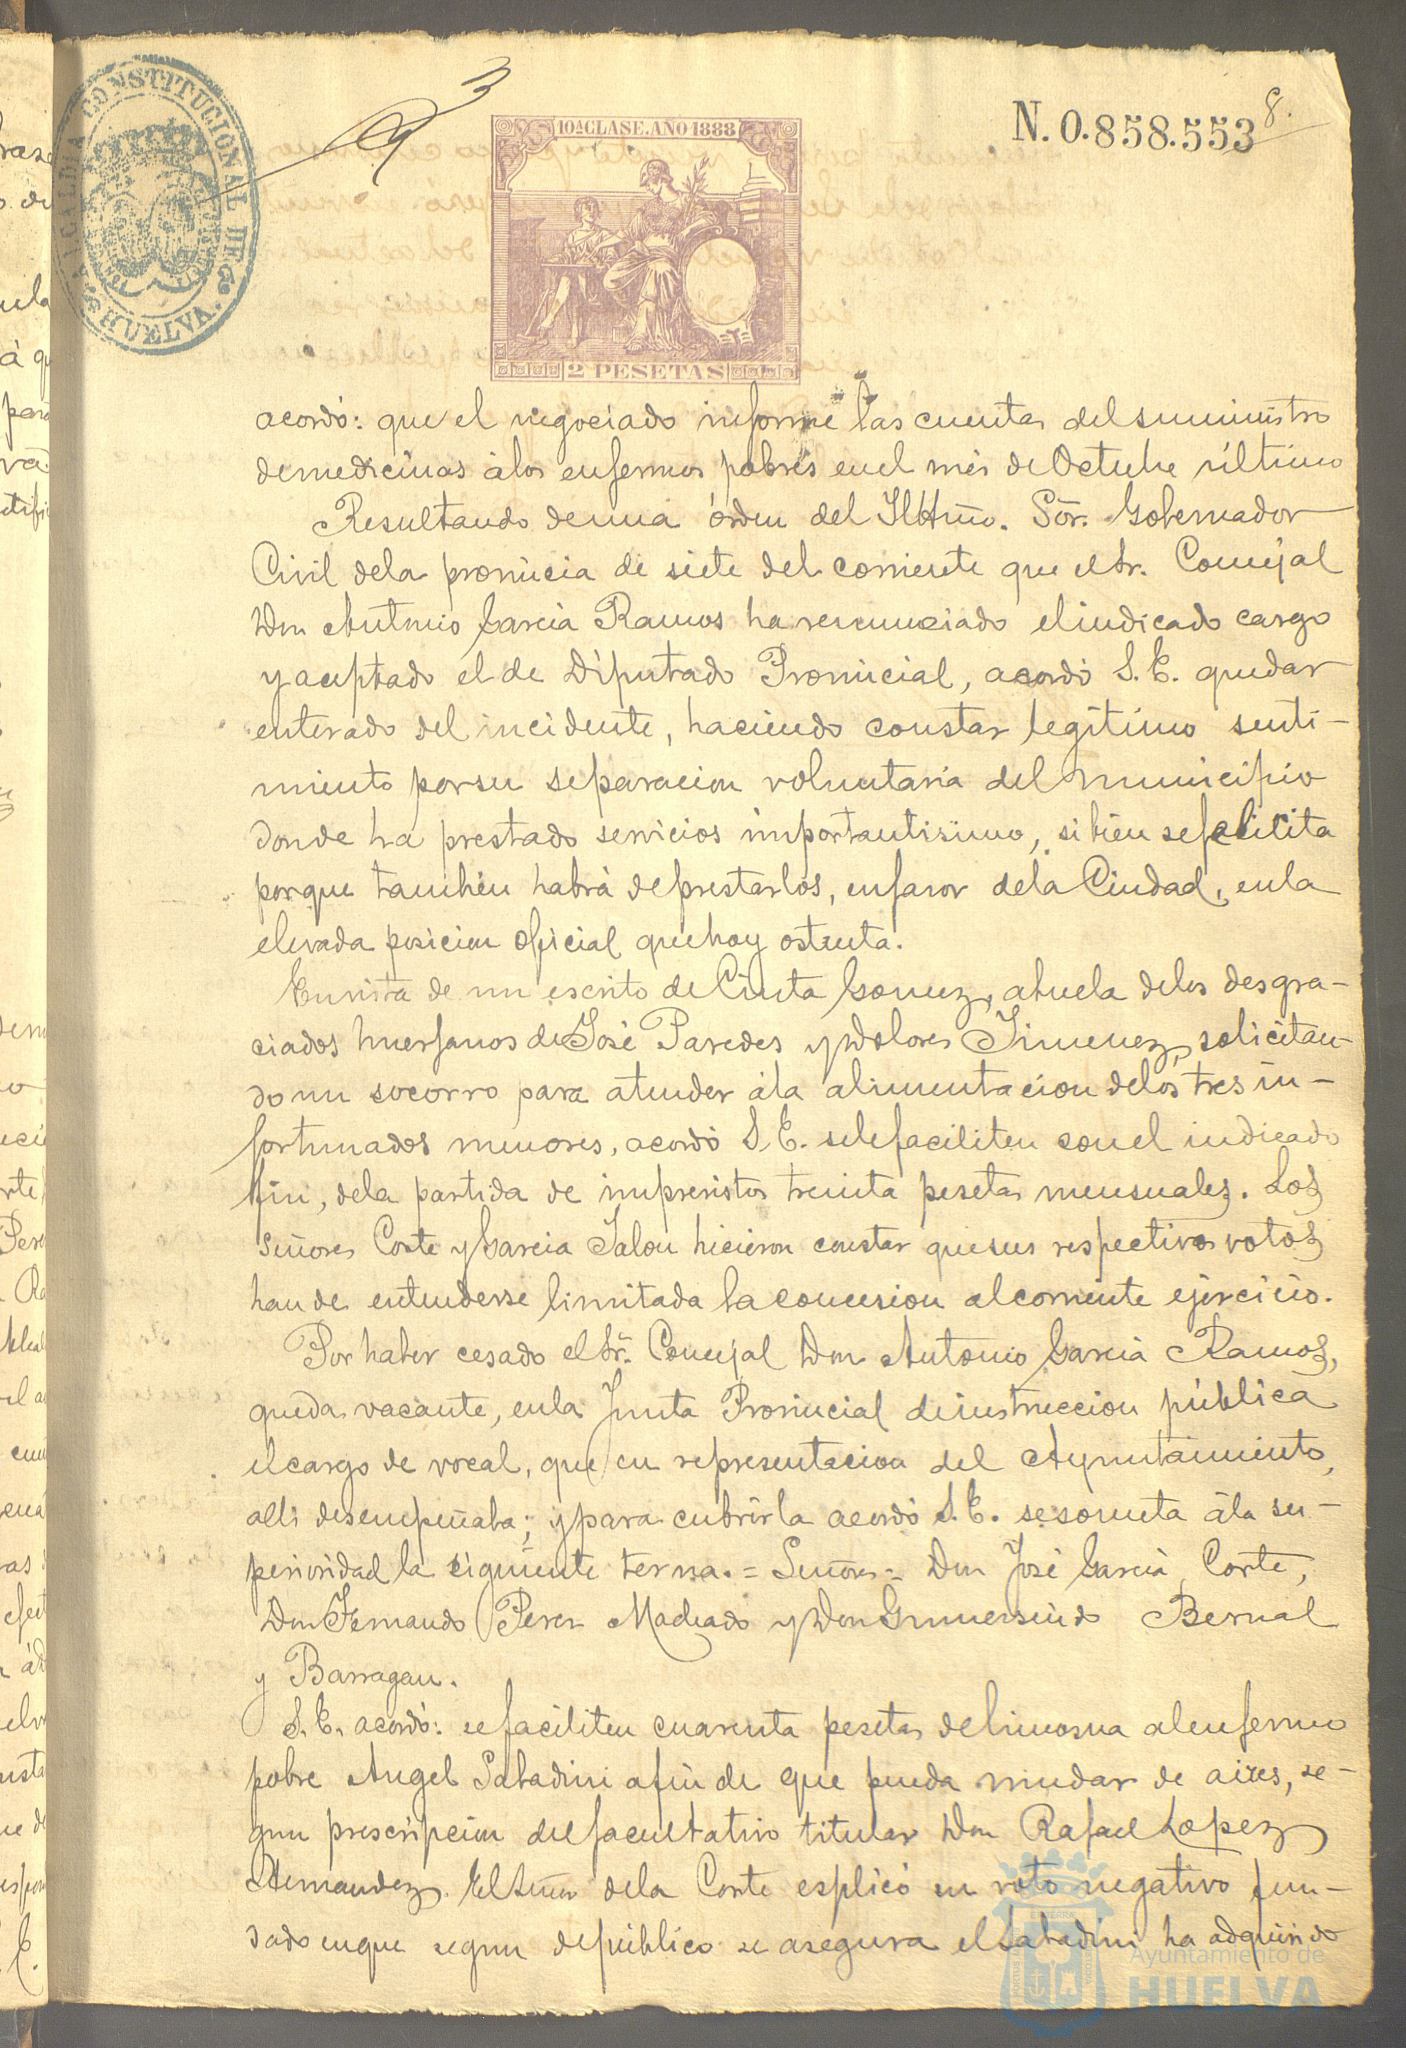 ALCALDIA CONSTITUCIONAL DE HUELVA
3
10ª CLASE. AÑO 1888
N. 0.858.553
8.
2 PESETAS
acordó: que el negociado informe las cuentas del suministro
de medicinas á los enfermos pobres en el més de Octubre último
Resultando de una órden del Iltmo. Sõr. Gobernador
Civil dela provincia de siete del corriente que el Sr. Concejal
Don Antonio Garcia Ramos ha renunciado el indicado cargo
y aceptado el de Diputado Provincial, acordó S. E. quedar
enterado del incidente, haciendo constar legítimo senti-
miento por su separacion voluntaria del municipio
donde ha prestado servicios importantisimo, si bien se felicita
porque tambien habrá de prestarlos, en favor dela Ciudad, en la
elevada posicion oficial que hoy ostenta.
En vista de un escrito de Cinta Gomez, abuela delos desgra-
ciados huerfanos de José Paredes y Dolores Jimenez, solicitan-
do un socorro para atender ála alimentacion delos tres in-
fortunados menores, acordó S. E. se le faciliten con el indicado
fin, dela partida de imprevistos treinta pesetas mensuales. Los
Señores Corte y Garcia Jalon hicieron constar que sus respectivos votos
han de entenderse limitada la concesion al corriente ejercicio.
Por haber cesado el Sr. Concejal Don Antonio Garcia Ramos,
queda vacante, en la Junta Provincial de instruccion pública
el cargo de vocal, que en representacion del Ayuntamiento,
alli desempeñaba; y para cubrirla acordó S. E. se someta á la su-
perioridad la siguiente terna. = Señores = Don José Garcia Corte,
Don Fernando Perez Machado y Don Gumersindo Bernal
y Barragan.
S. E. acordó: se faciliten cuarenta pesetas de limosna al enfermo
pobre Angel Sabadini a fin de que pueda mudar de aires, se-
gun prescripcion del facultativo titular Don Rafael Lopez
Hernandez. El Señor dela Corte esplicó su voto negativo fun-
dado en que segun de público se asegura el Sabadini ha adquirido
Ayuntamiento de
HUELVA